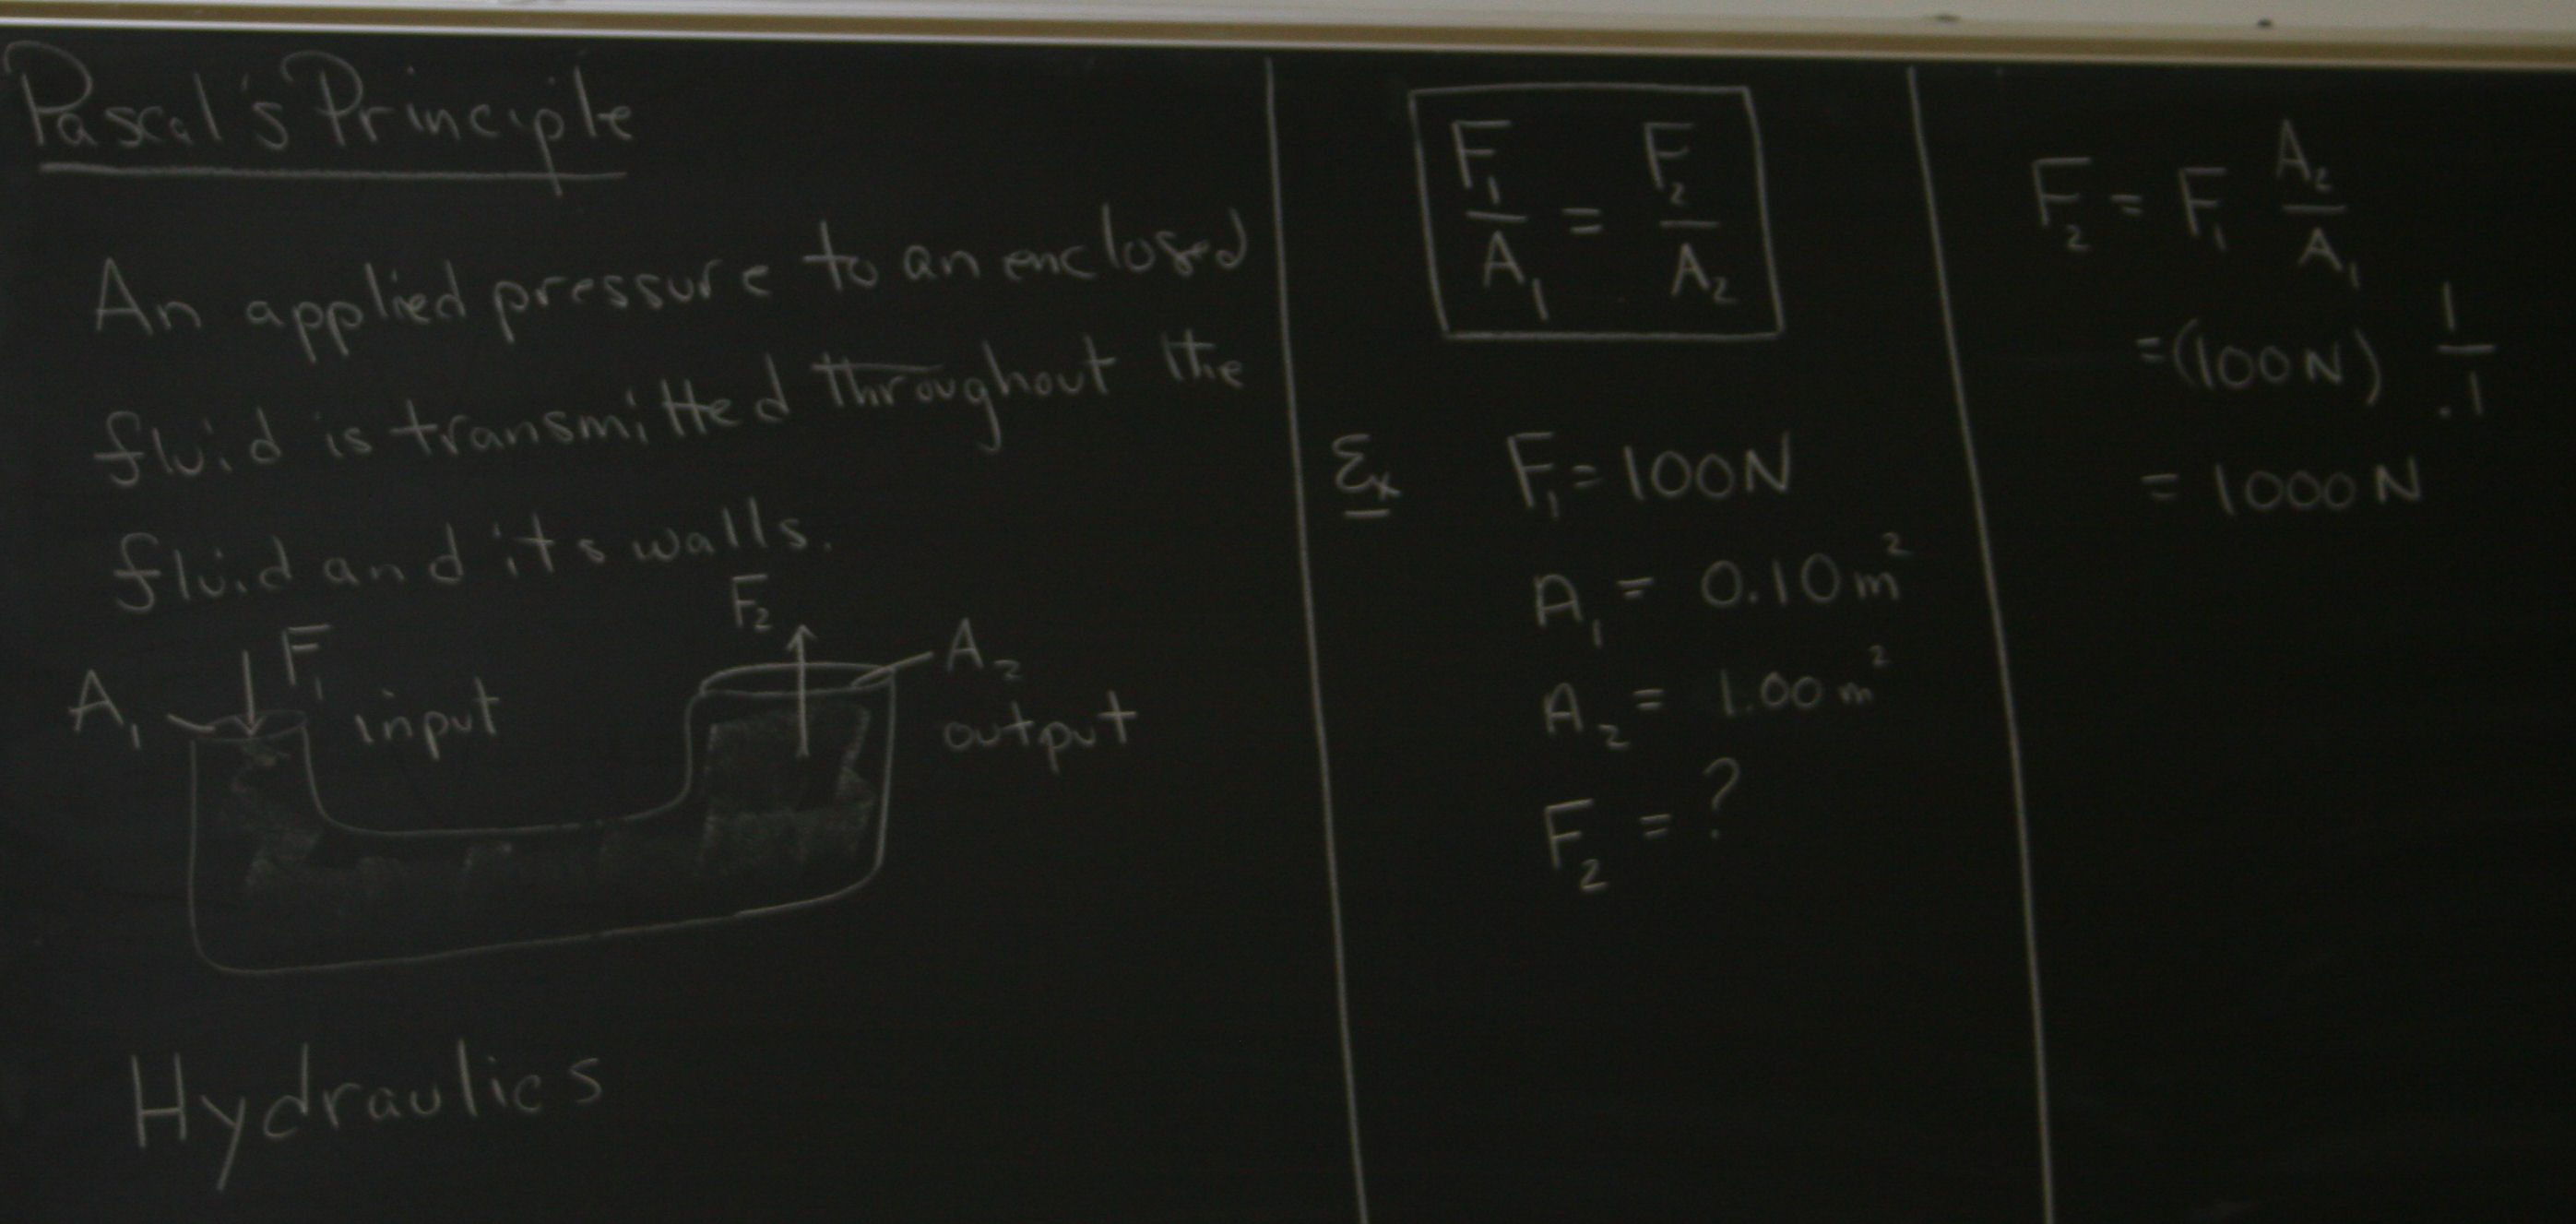 Pascal's Principle
An applied pressure to an enclosed
fluid is transmitted throughout the
fluid and its walls.
A₁ F₁ input
F₂
A₂
output
Hydraulics
F₁/A₁ = F₂/A₂
Ex F₁ = 100N
A₁ = 0.10 m²
A₂ = 1.00 m²
F₂ = ?
F₂ = F₁ A₂/A₁
= (100N) 1/.1
= 1000 N